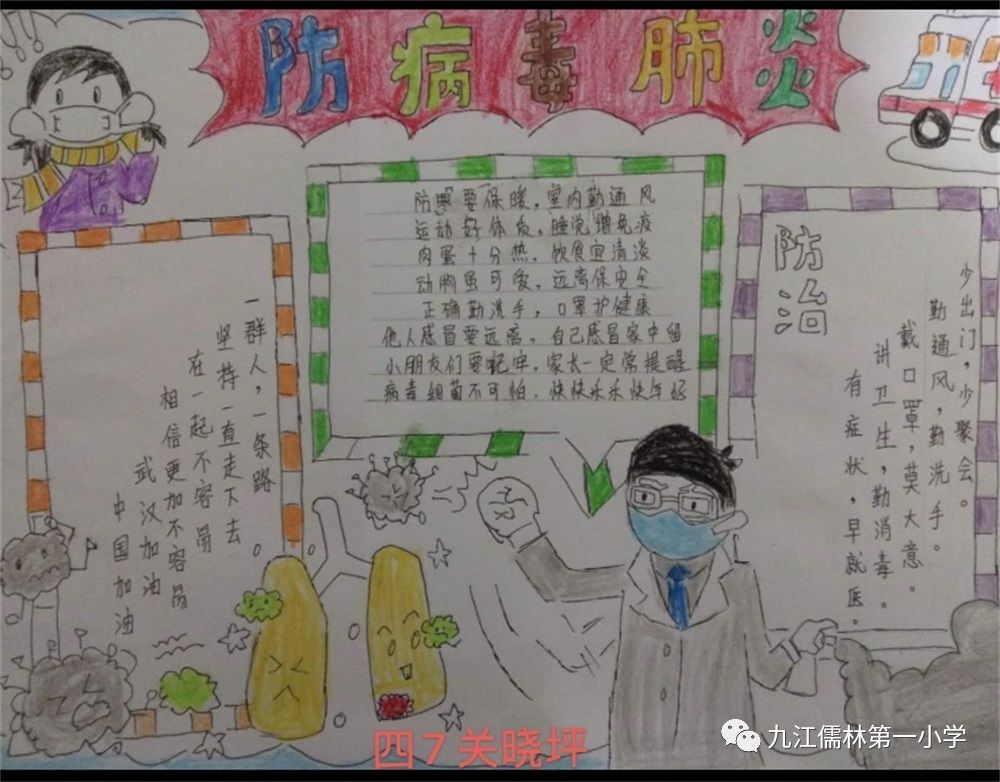 防病毒肺炎
防寒要保暖，室内勤通风
运动好体质，睡觉增免疫
肉蛋十分热，饮食宜清淡
动物虽可爱，远离保安全
正确勤洗手，口罩护健康
他人感冒要远离，自己感冒家中留
小朋友们要记牢，家长一定常提醒
病毒细菌不可怕，快快乐乐快年好
一群人，一条路
坚持一直走下去
在一起不容易
相信更加不容易
武汉加油
中国加油
防治
少出门，少聚会。
勤通风，勤洗手。
戴口罩，莫大意。
讲卫生，勤消毒。
有症状，早就医。
四7关晓坪
九江儒林第一小学